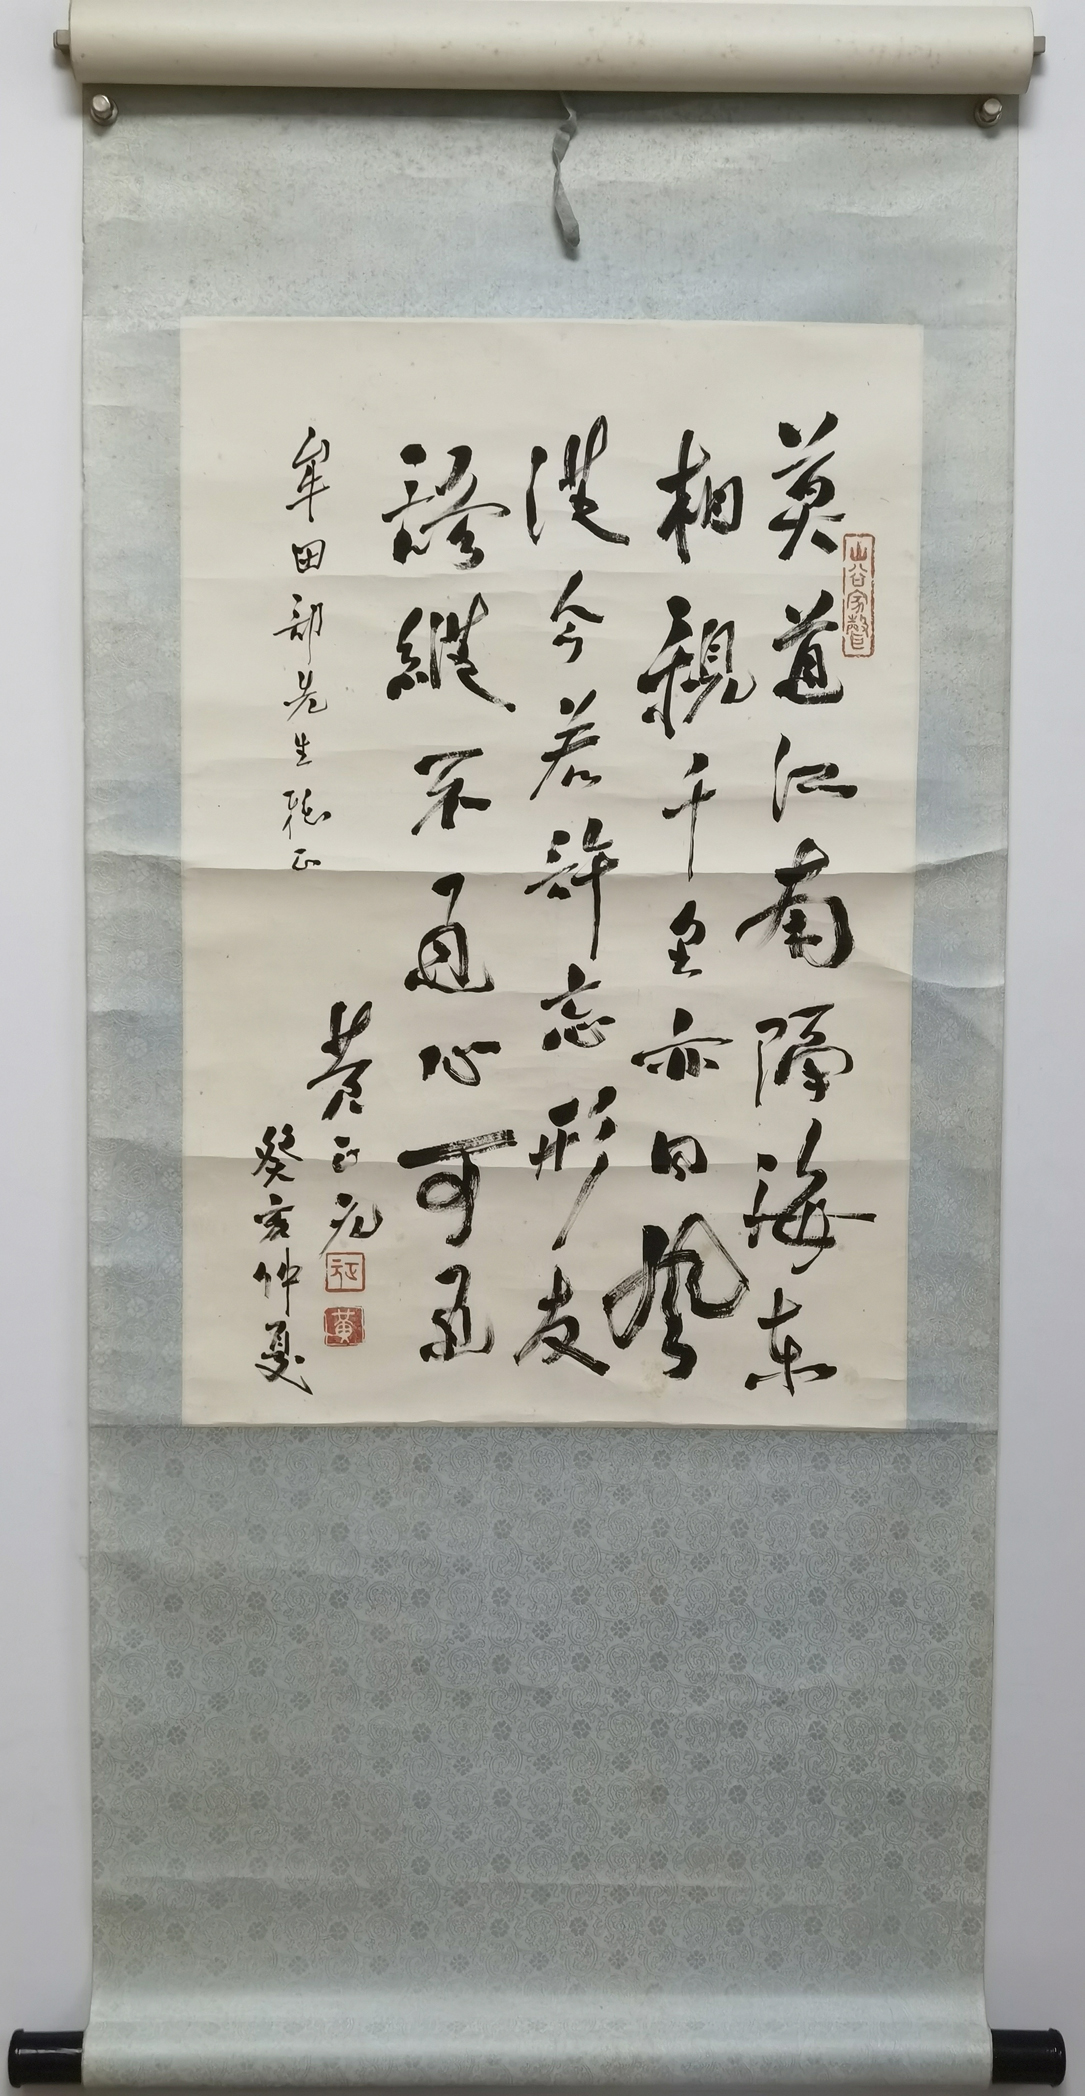 山谷家聲
莫道江南隔海東
相親千里亦同風
從今若許忘形友
語縱不通心可通
牟田部先生雅正
黃正元
癸亥仲夏
黃